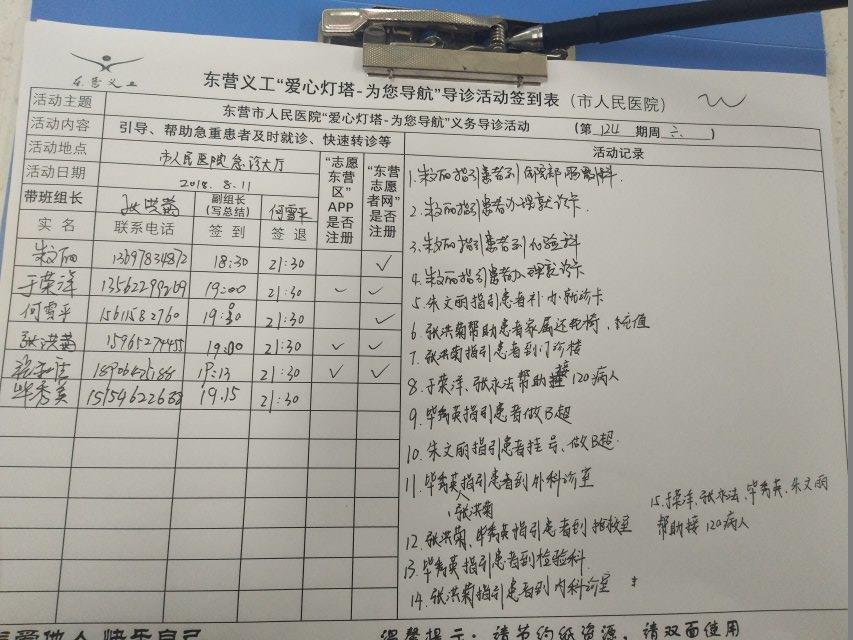 东营义工
东营义工“爱心灯塔-为您导航”导诊活动签到表（市人民医院）
活动主题 东营市人民医院“爱心灯塔-为您导航”义务导诊活动 （第 124 期周 六 ）
活动内容 引导、帮助急重患者及时就诊、快速转诊等 活动记录
活动地点 市人民医院急诊大厅
活动日期 2018.8.11
带班组长 张洪菊 副组长（写总结） 何雪平 “志愿东营区”APP是否注册 “东营志愿者网”是否注册
实名 联系电话 签到 签退
朱文丽 13697834872 18:30 21:30 ✓
于荣洋 13562299269 19:00 21:30 ✓ ✓
何雪平 15611582760 21:30 ✓
张洪菊 15965274455 19:00 21:30 ✓ ✓
19:13 21:30 ✓ ✓
毕秀英 19.15 21:30
1.朱文丽指引患者到
2.朱文丽指引患者办理就诊卡.
3.朱文丽指引患者到化验科
4.朱文丽指引患者办理就诊卡
5.朱文丽指引患者补办就诊卡
6.张洪菊帮助患者家属还轮椅、充值
7.张洪菊指引患者到门诊楼
8.于荣洋、张永法帮助接120病人
9.毕秀英指引患者做B超
10.朱文丽指引患者挂号、做B超.
11.毕秀英指引患者到外科诊室
、张洪菊
12.张洪菊、毕秀英指引患者到抢救室
13.毕秀英指引患者到检验科.
14.张洪菊指引患者到内科诊室
15.于荣洋、张永法、毕秀英、朱文丽
帮助接120病人
喜爱他人 快乐自己 温馨提示：请节约纸资源，请双面使用